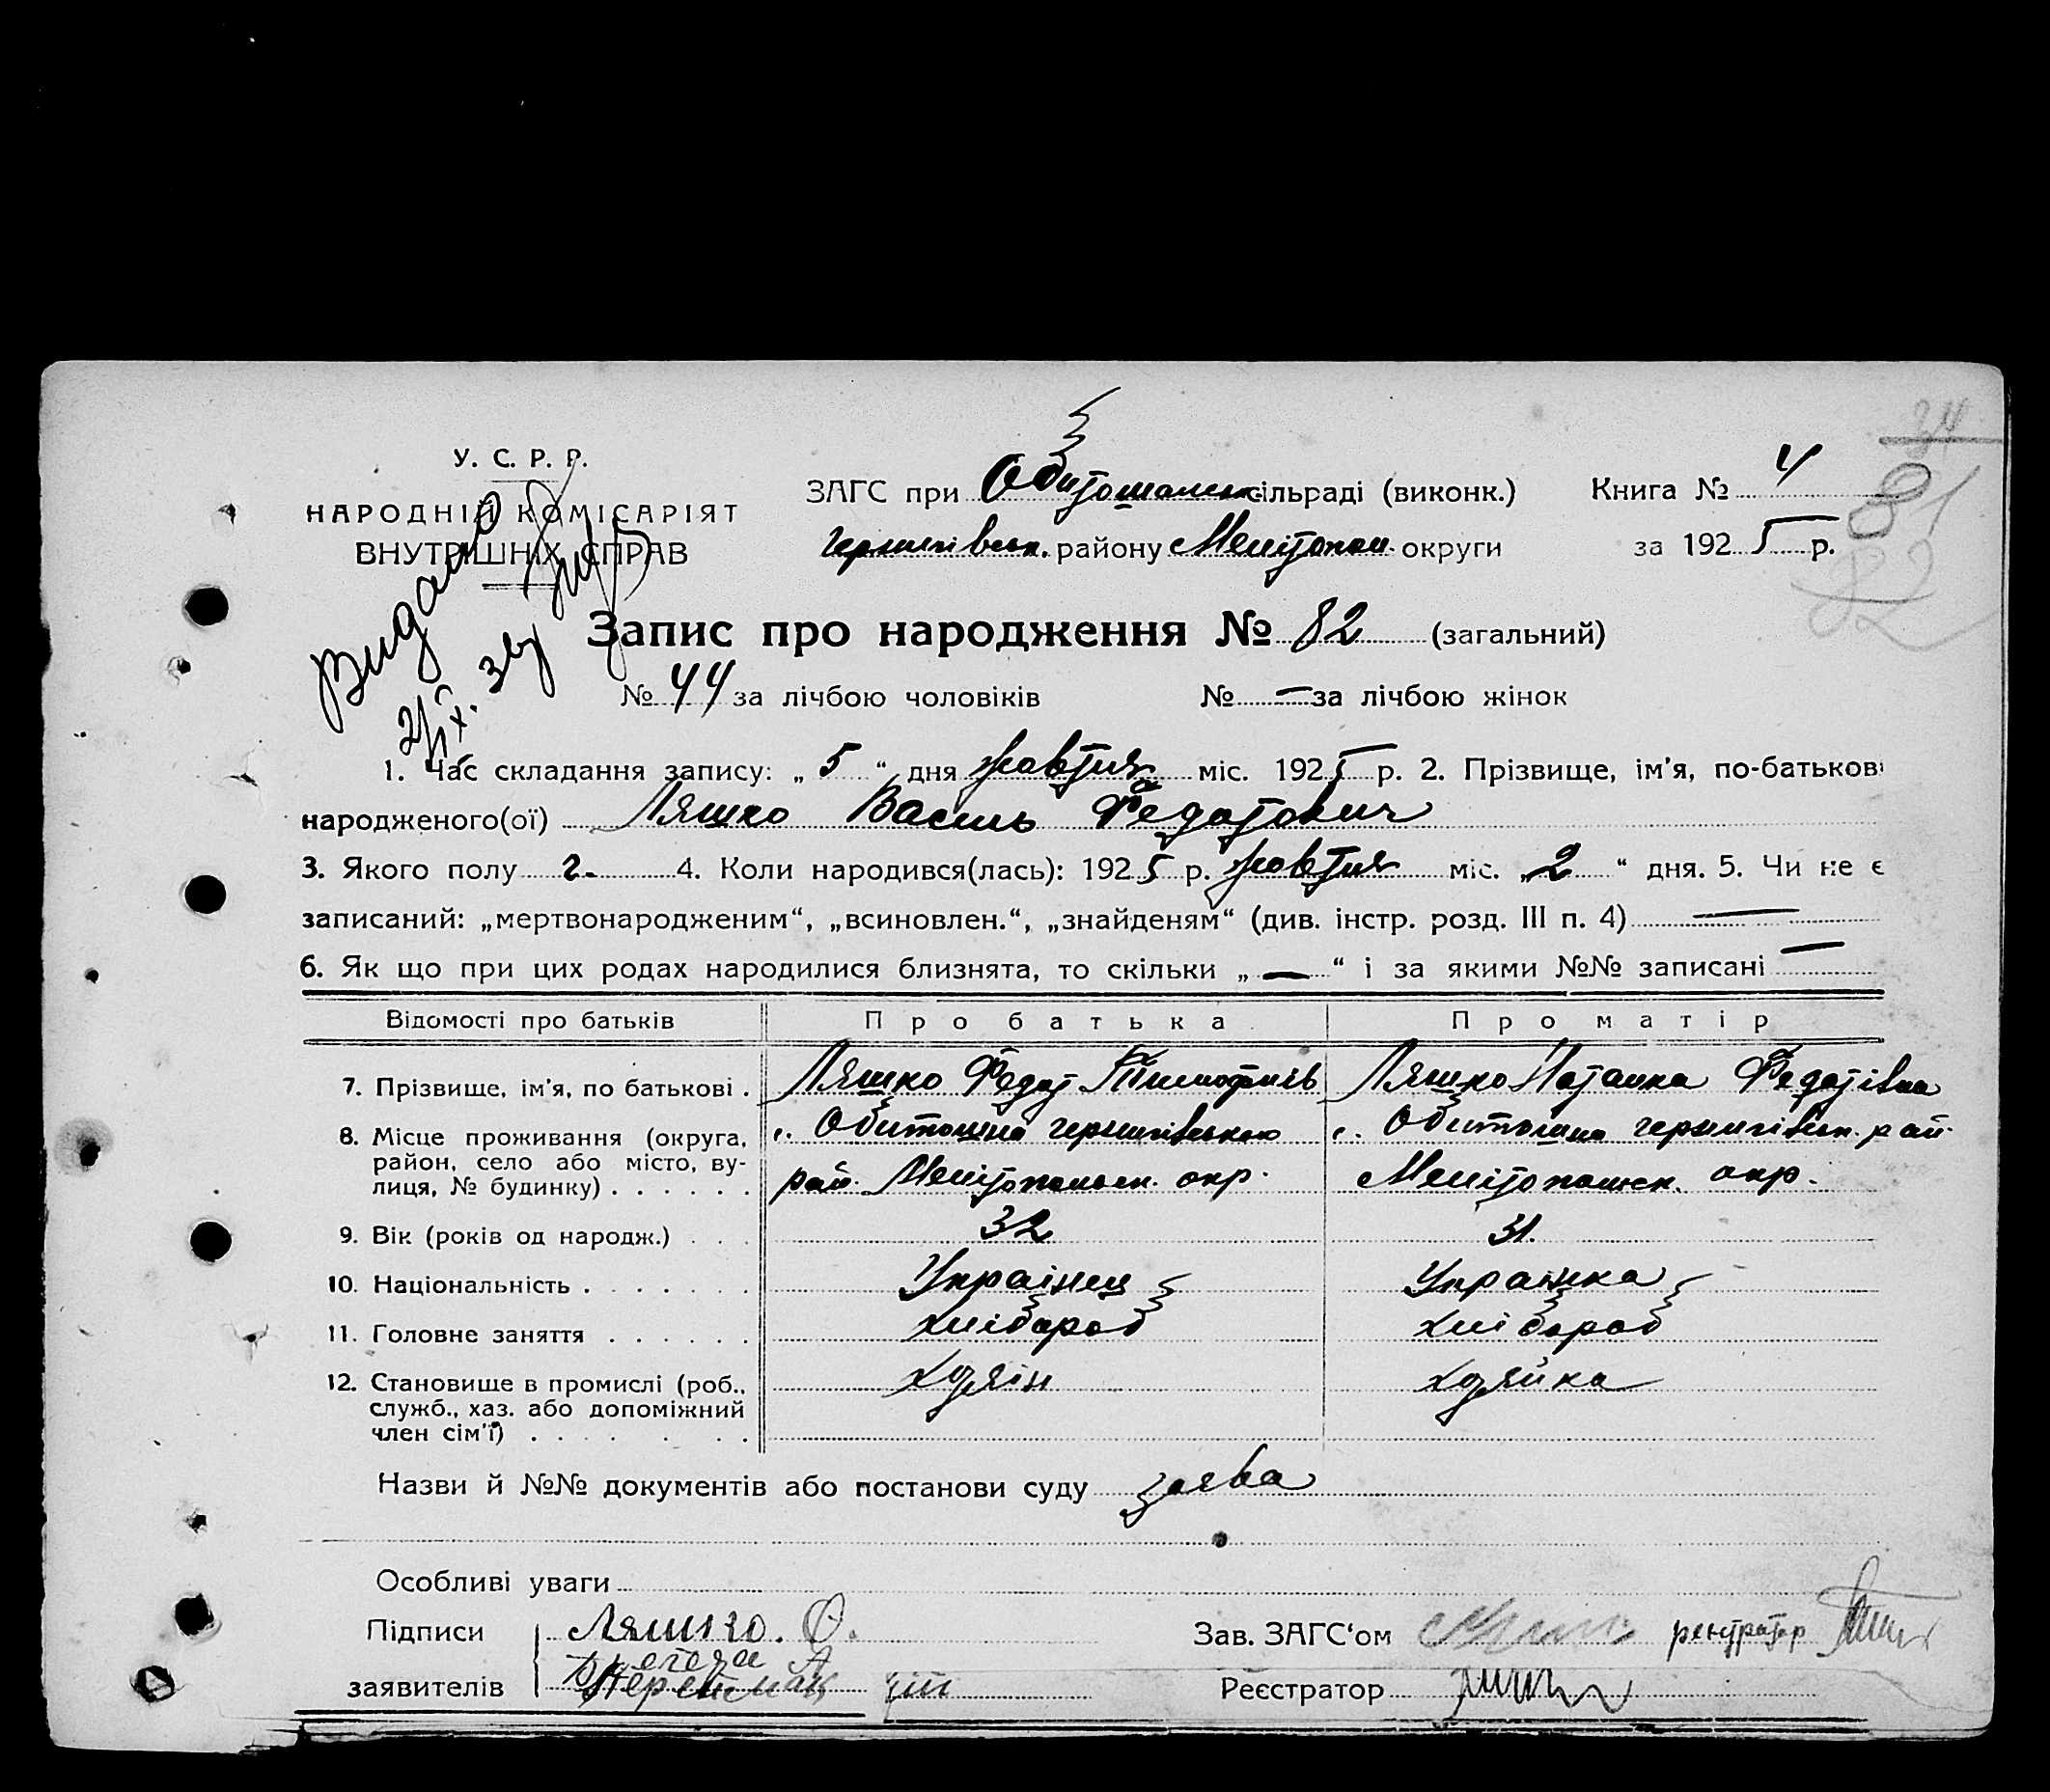 У. С. Р. Р.
НАРОДНІЙ КОМІСАРІЯТ
ВНУТРІШНІХ СПРАВ
Видано
ЗАГС при Обиточанськ. сільраді (виконк.) Книга № 4
Чернигівськ. району Мелітопол. округи за 1925 р.
34
81
82
Запис про народження № 82 (загальний)
№ 44 за лічбою чоловіків № — за лічбою жінок
1. Час складання запису: „ 5 “ дня жовтня міс. 1925 р. 2. Прізвище, ім'я, по-батькові
народженого(ої) Ляшко Василь Федотович
3. Якого полу ч. 4. Коли народився(лась): 1925 р. жовтня міс. „ 2 “ дня. 5. Чи не є
записаний: „мертвонародженим“, „всиновлен.“, „знайденям“ (див. інстр. розд. III п. 4) —
6. Як що при цих родах народилися близнята, то скільки „ — “ і за якими №№ записані —
Відомості про батьків Про батька Про матір
7. Прізвище, ім'я, по батькові . Ляшко Федот Тимофиїв Ляшко Наталка Федотівна
8. Місце проживання (округа, район, село або місто, вулиця, № будинку) . . . . . .
с. Обиточна чернигівського рай. Мелітопольск. окр.
с. Обиточна чернигівськ. рай. Мелітопольск. окр.
9. Вік (років од народж.) . . . 32 31.
10. Національність . . . . . . . Українец Українка
11. Головне заняття . . . . . . хлібороб хлібороб
12. Становище в промислі (роб., служб., хаз. або допоміжний член сім'ї) . . . . . . .
хозяін хозяйка
Назви й №№ документів або постанови суду заява
Особливі уваги
Підписи Ляшко. Ф. Зав. ЗАГС‘ом реєстратор
заявителів Реєстратор